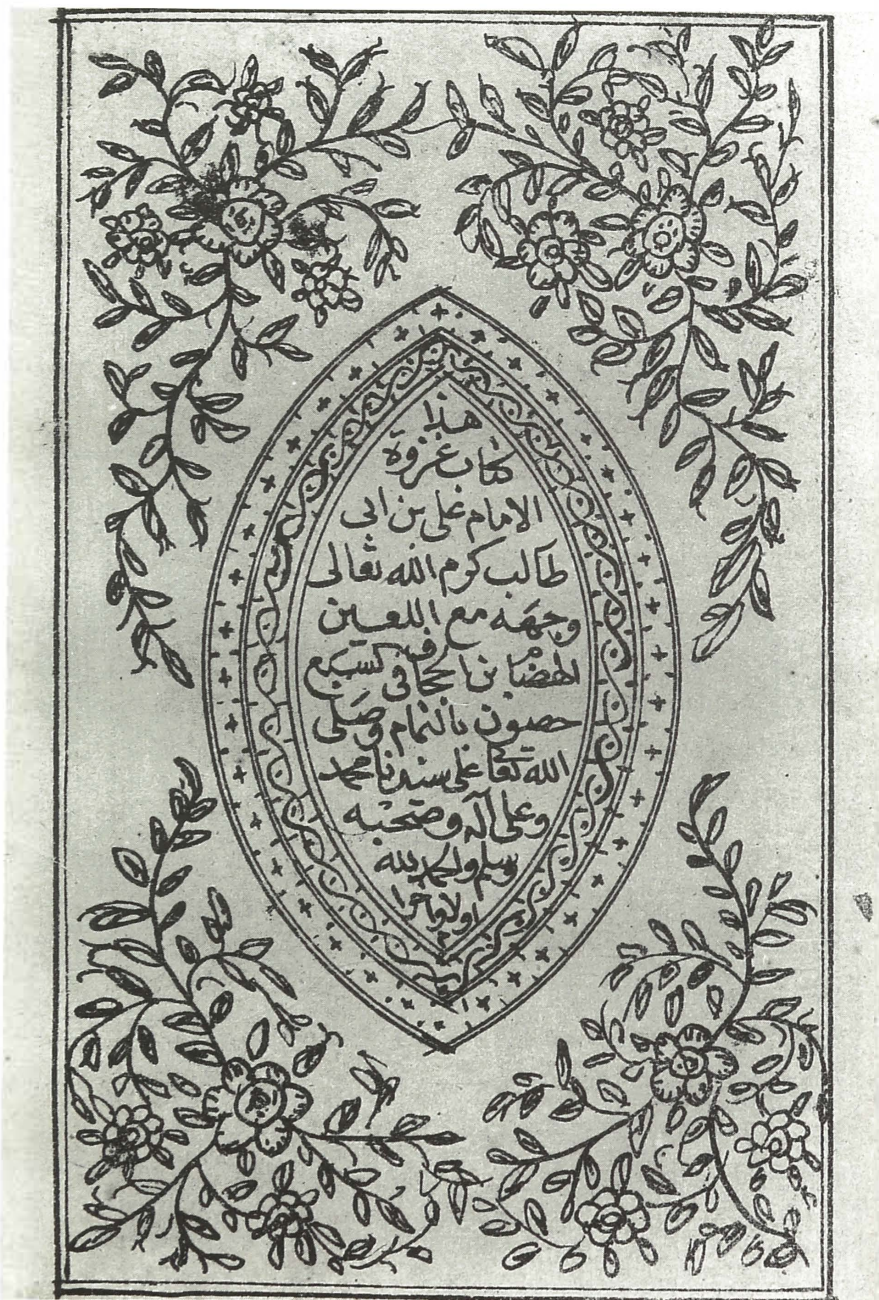 هذا
كتاب غزوة
الامام علي بن ابي
طالب كرم الله تعالى
وجهه مع اللعين
الهضام بن الجحاف في سبع
حصون بالتمام وصلى
الله تعا على سيدنا محمد
وعلى آله وصحبه
وسلم والحمد لله
اولا واخرا